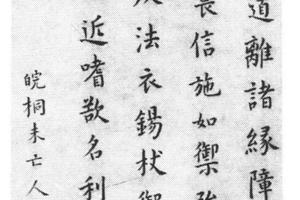 道離諸緣障
畏信施如禦
法衣錫杖
近嗜欲名利
皖桐未亡人